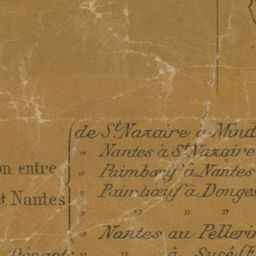 de St Nazaire à Mind
" Nantes à St Nazaire
on entre " Paimbœuf à Nantes
" Paimbœuf à Donges
et Nantes " " "
" Nantes au Pellerin
" " à Sucé